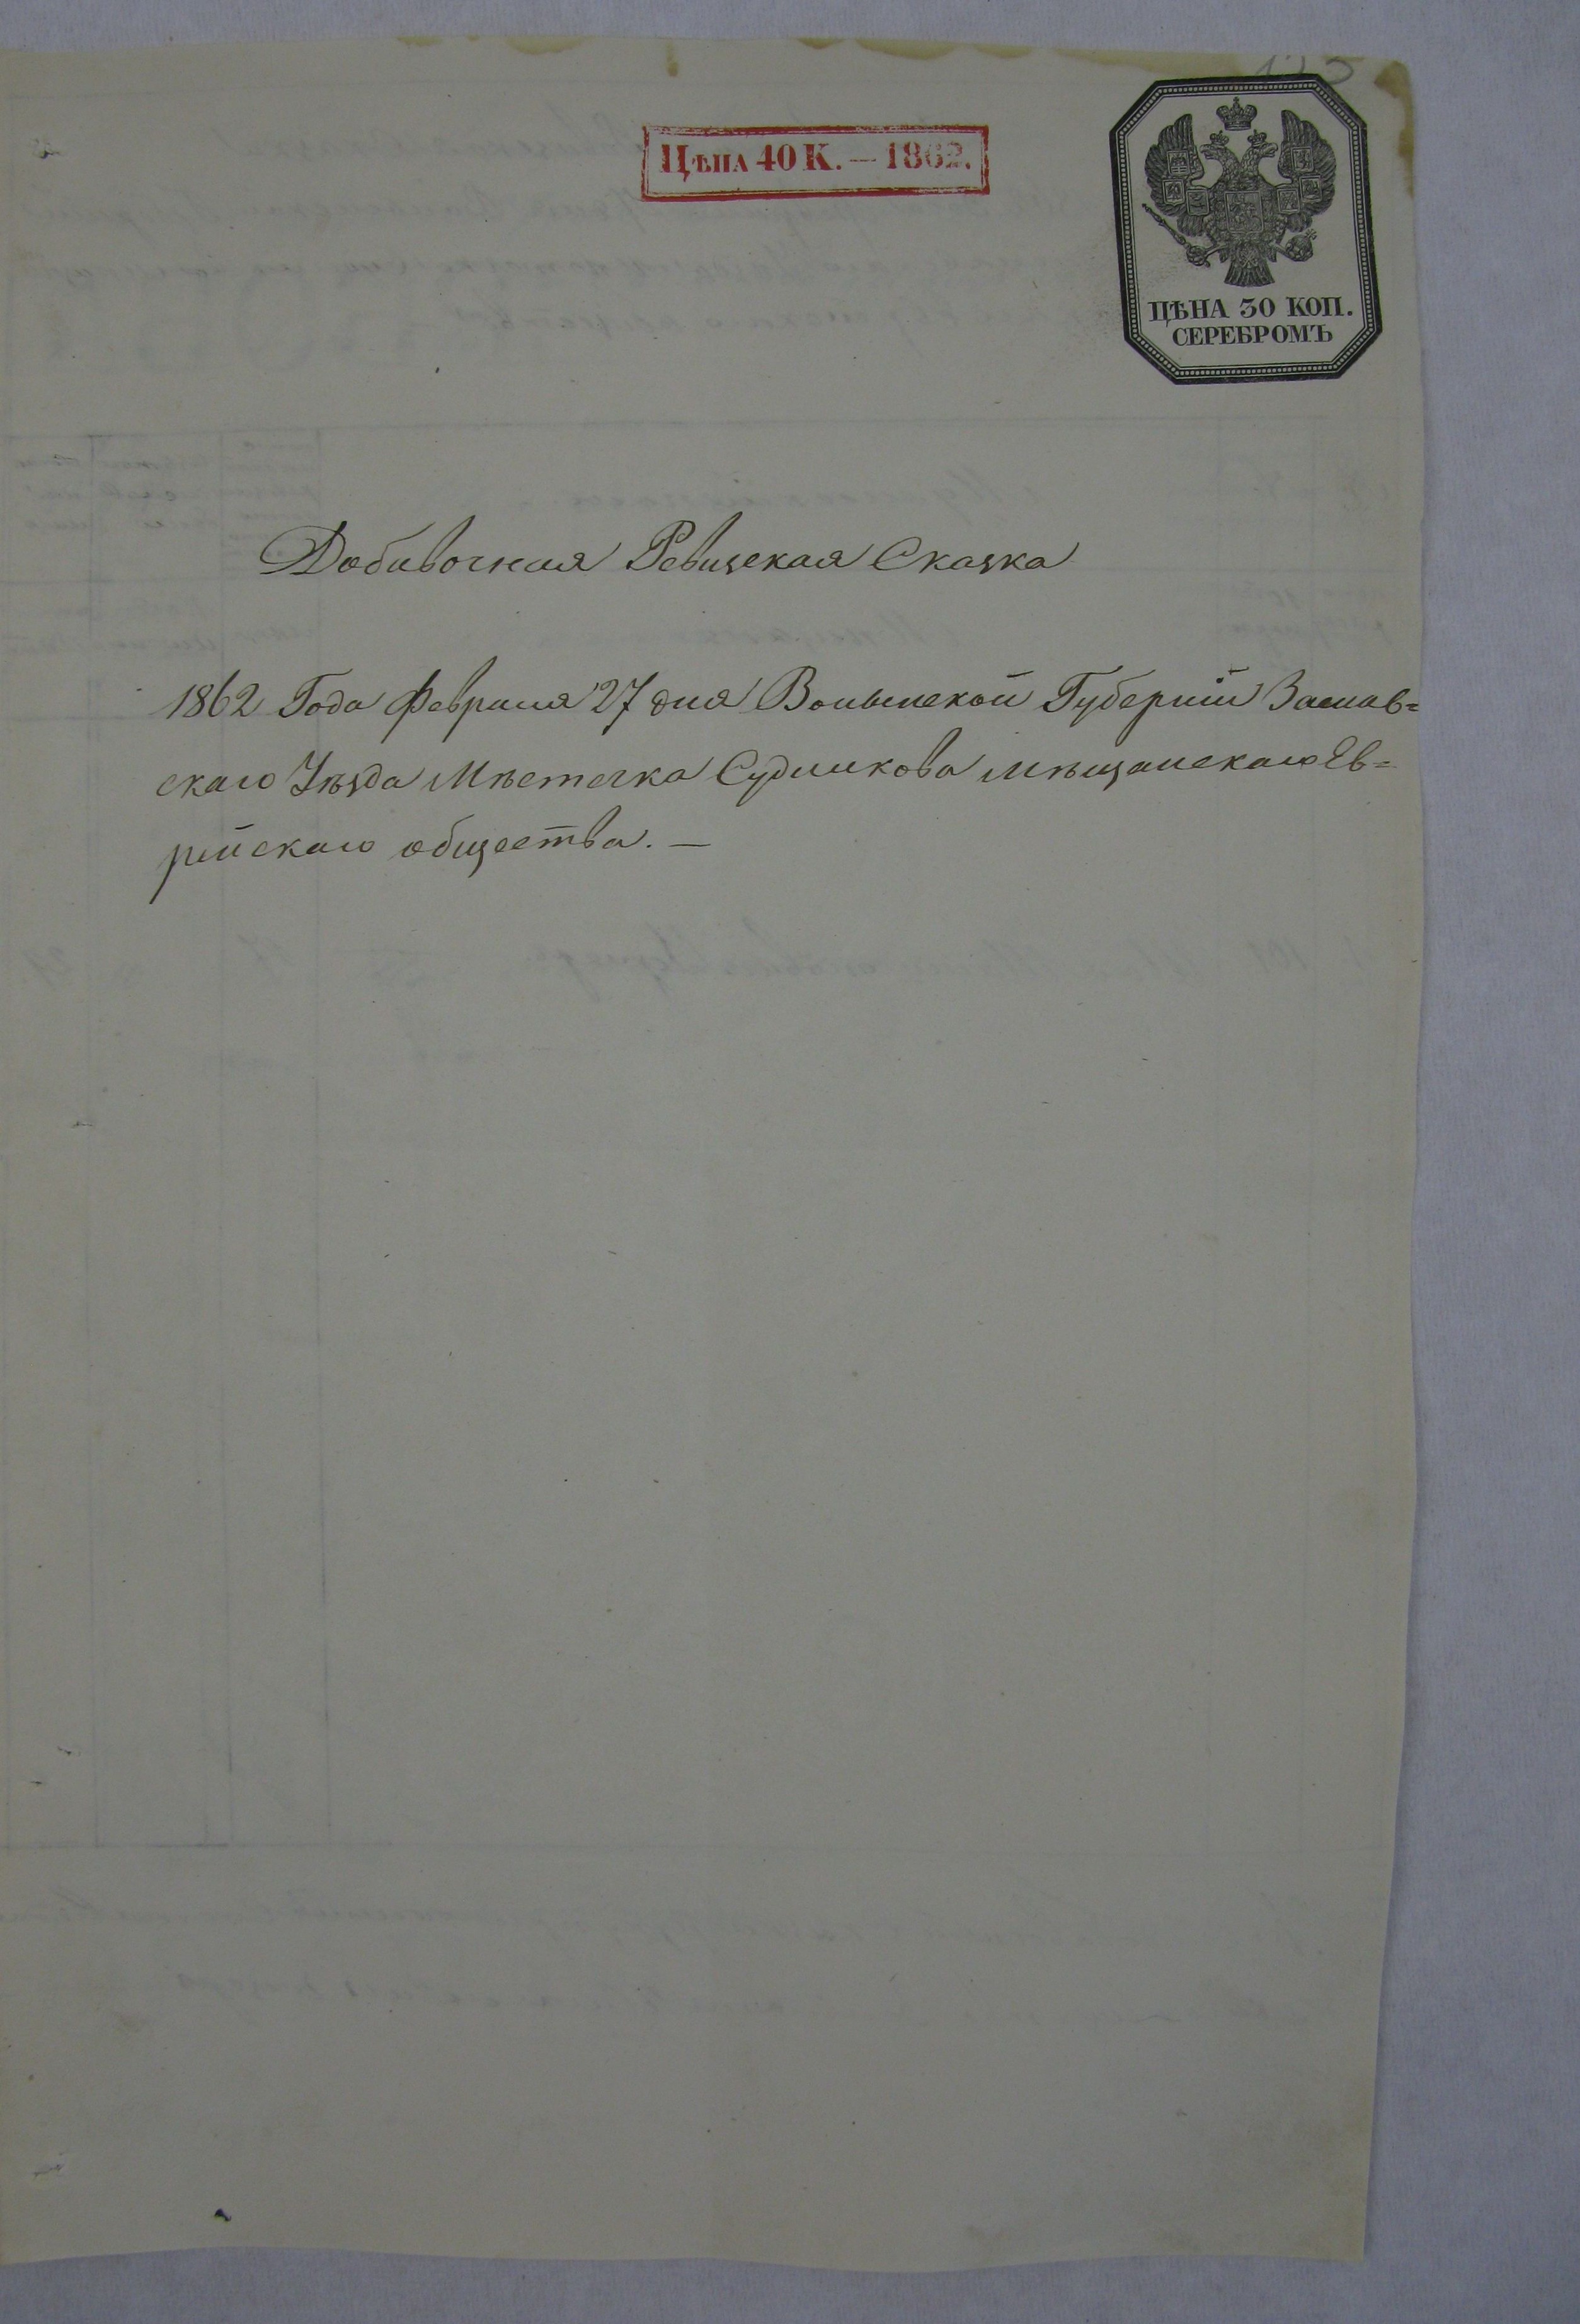 Цѣна 40 К. — 1862.
ЦѢНА 30 КОП.
СЕРЕБРОМЪ
Добавочная Ревизская Сказка
1862 Года Февраля 27 дня Волынской Губерніи Заслав=
скаго Уѣзда Мѣстечка Судилкова мѣщанскаго Ев=
рейскаго общества. —